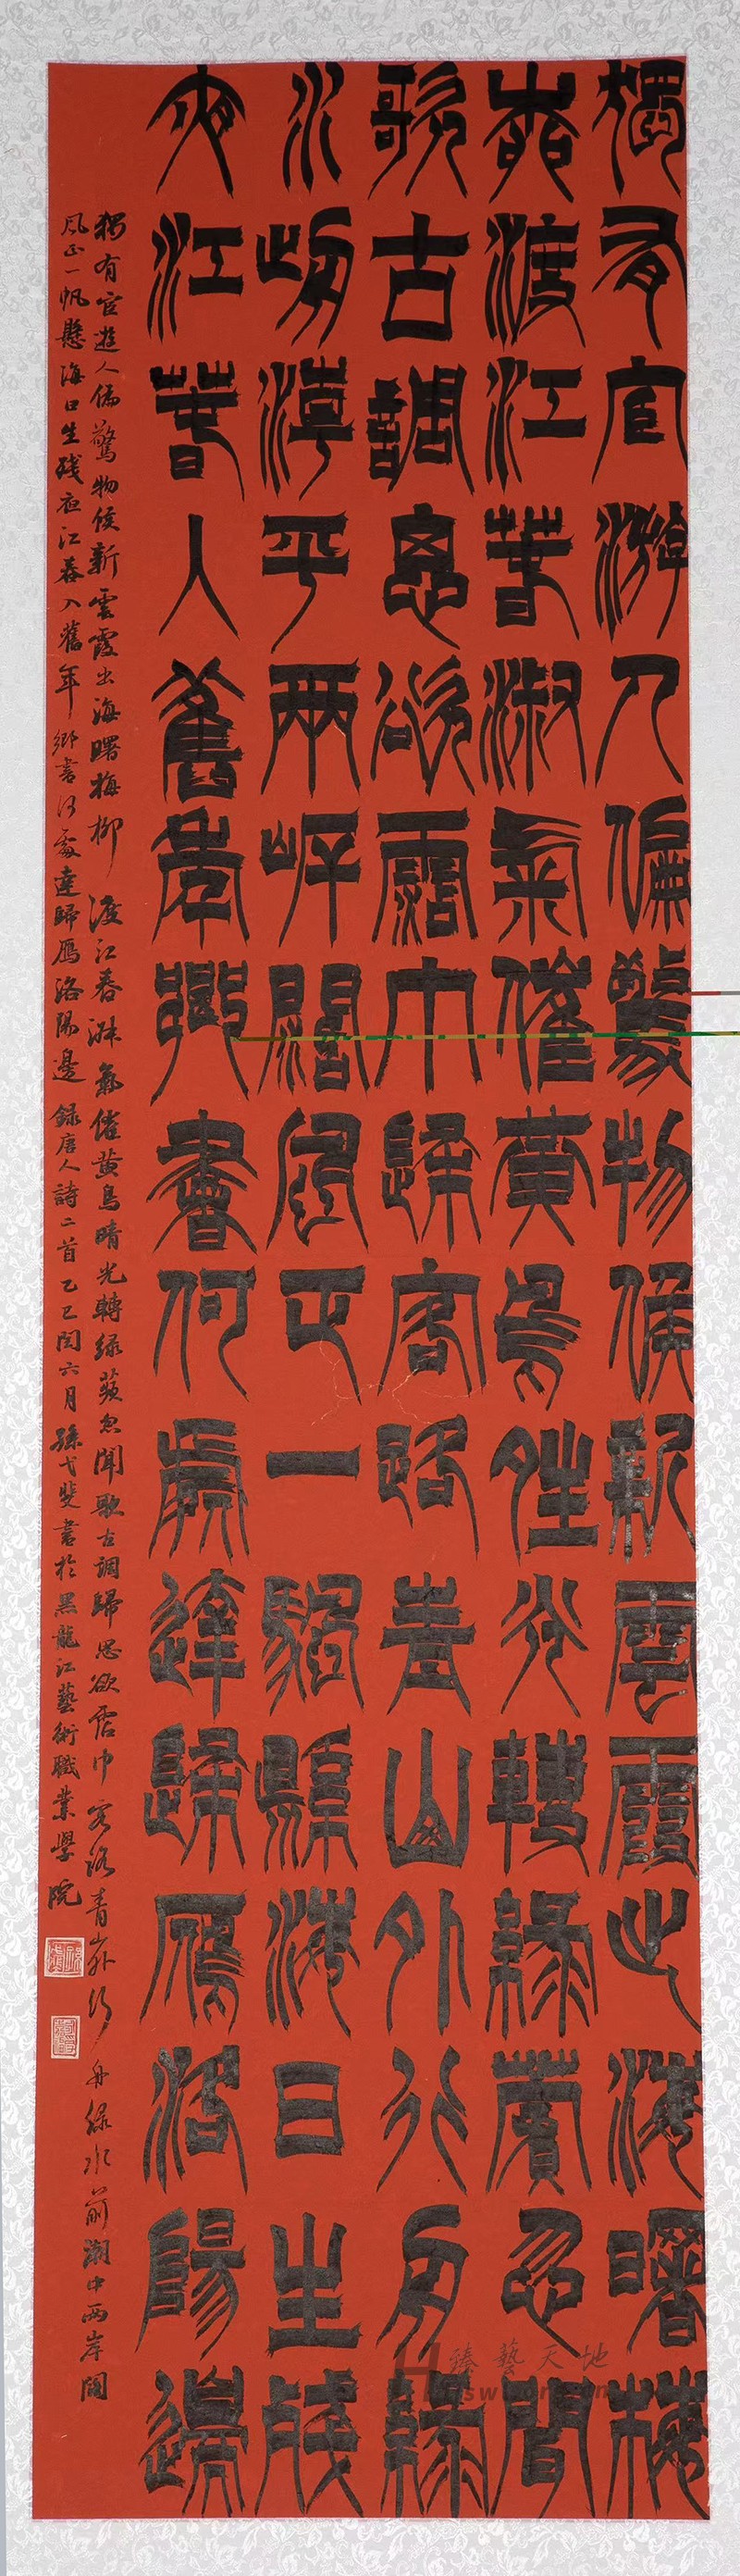 獨有宦游人偏驚物候新雲霞出海曙梅
柳渡江春淑氣催黃鳥晴光轉綠蘋忽聞
歌古調思欲霑巾歸客路青山外行舟綠
水前潮平兩岸闊風正一帆懸海日生殘
夜江春入舊年鄉書何處達歸雁洛陽邊
獨有宦遊人偏驚物候新雲霞出海曙梅柳渡江春淑氣催黃鳥晴光轉綠蘋忽聞歌古調歸思欲霑巾客路青山外行舟綠水前潮中兩岸闊
風正一帆懸海日生殘夜江春入舊年鄉書何處達歸雁洛陽邊錄唐人詩二首乙巳閏六月孫弋斐書於黑龍江藝術職業學院
臻藝天地